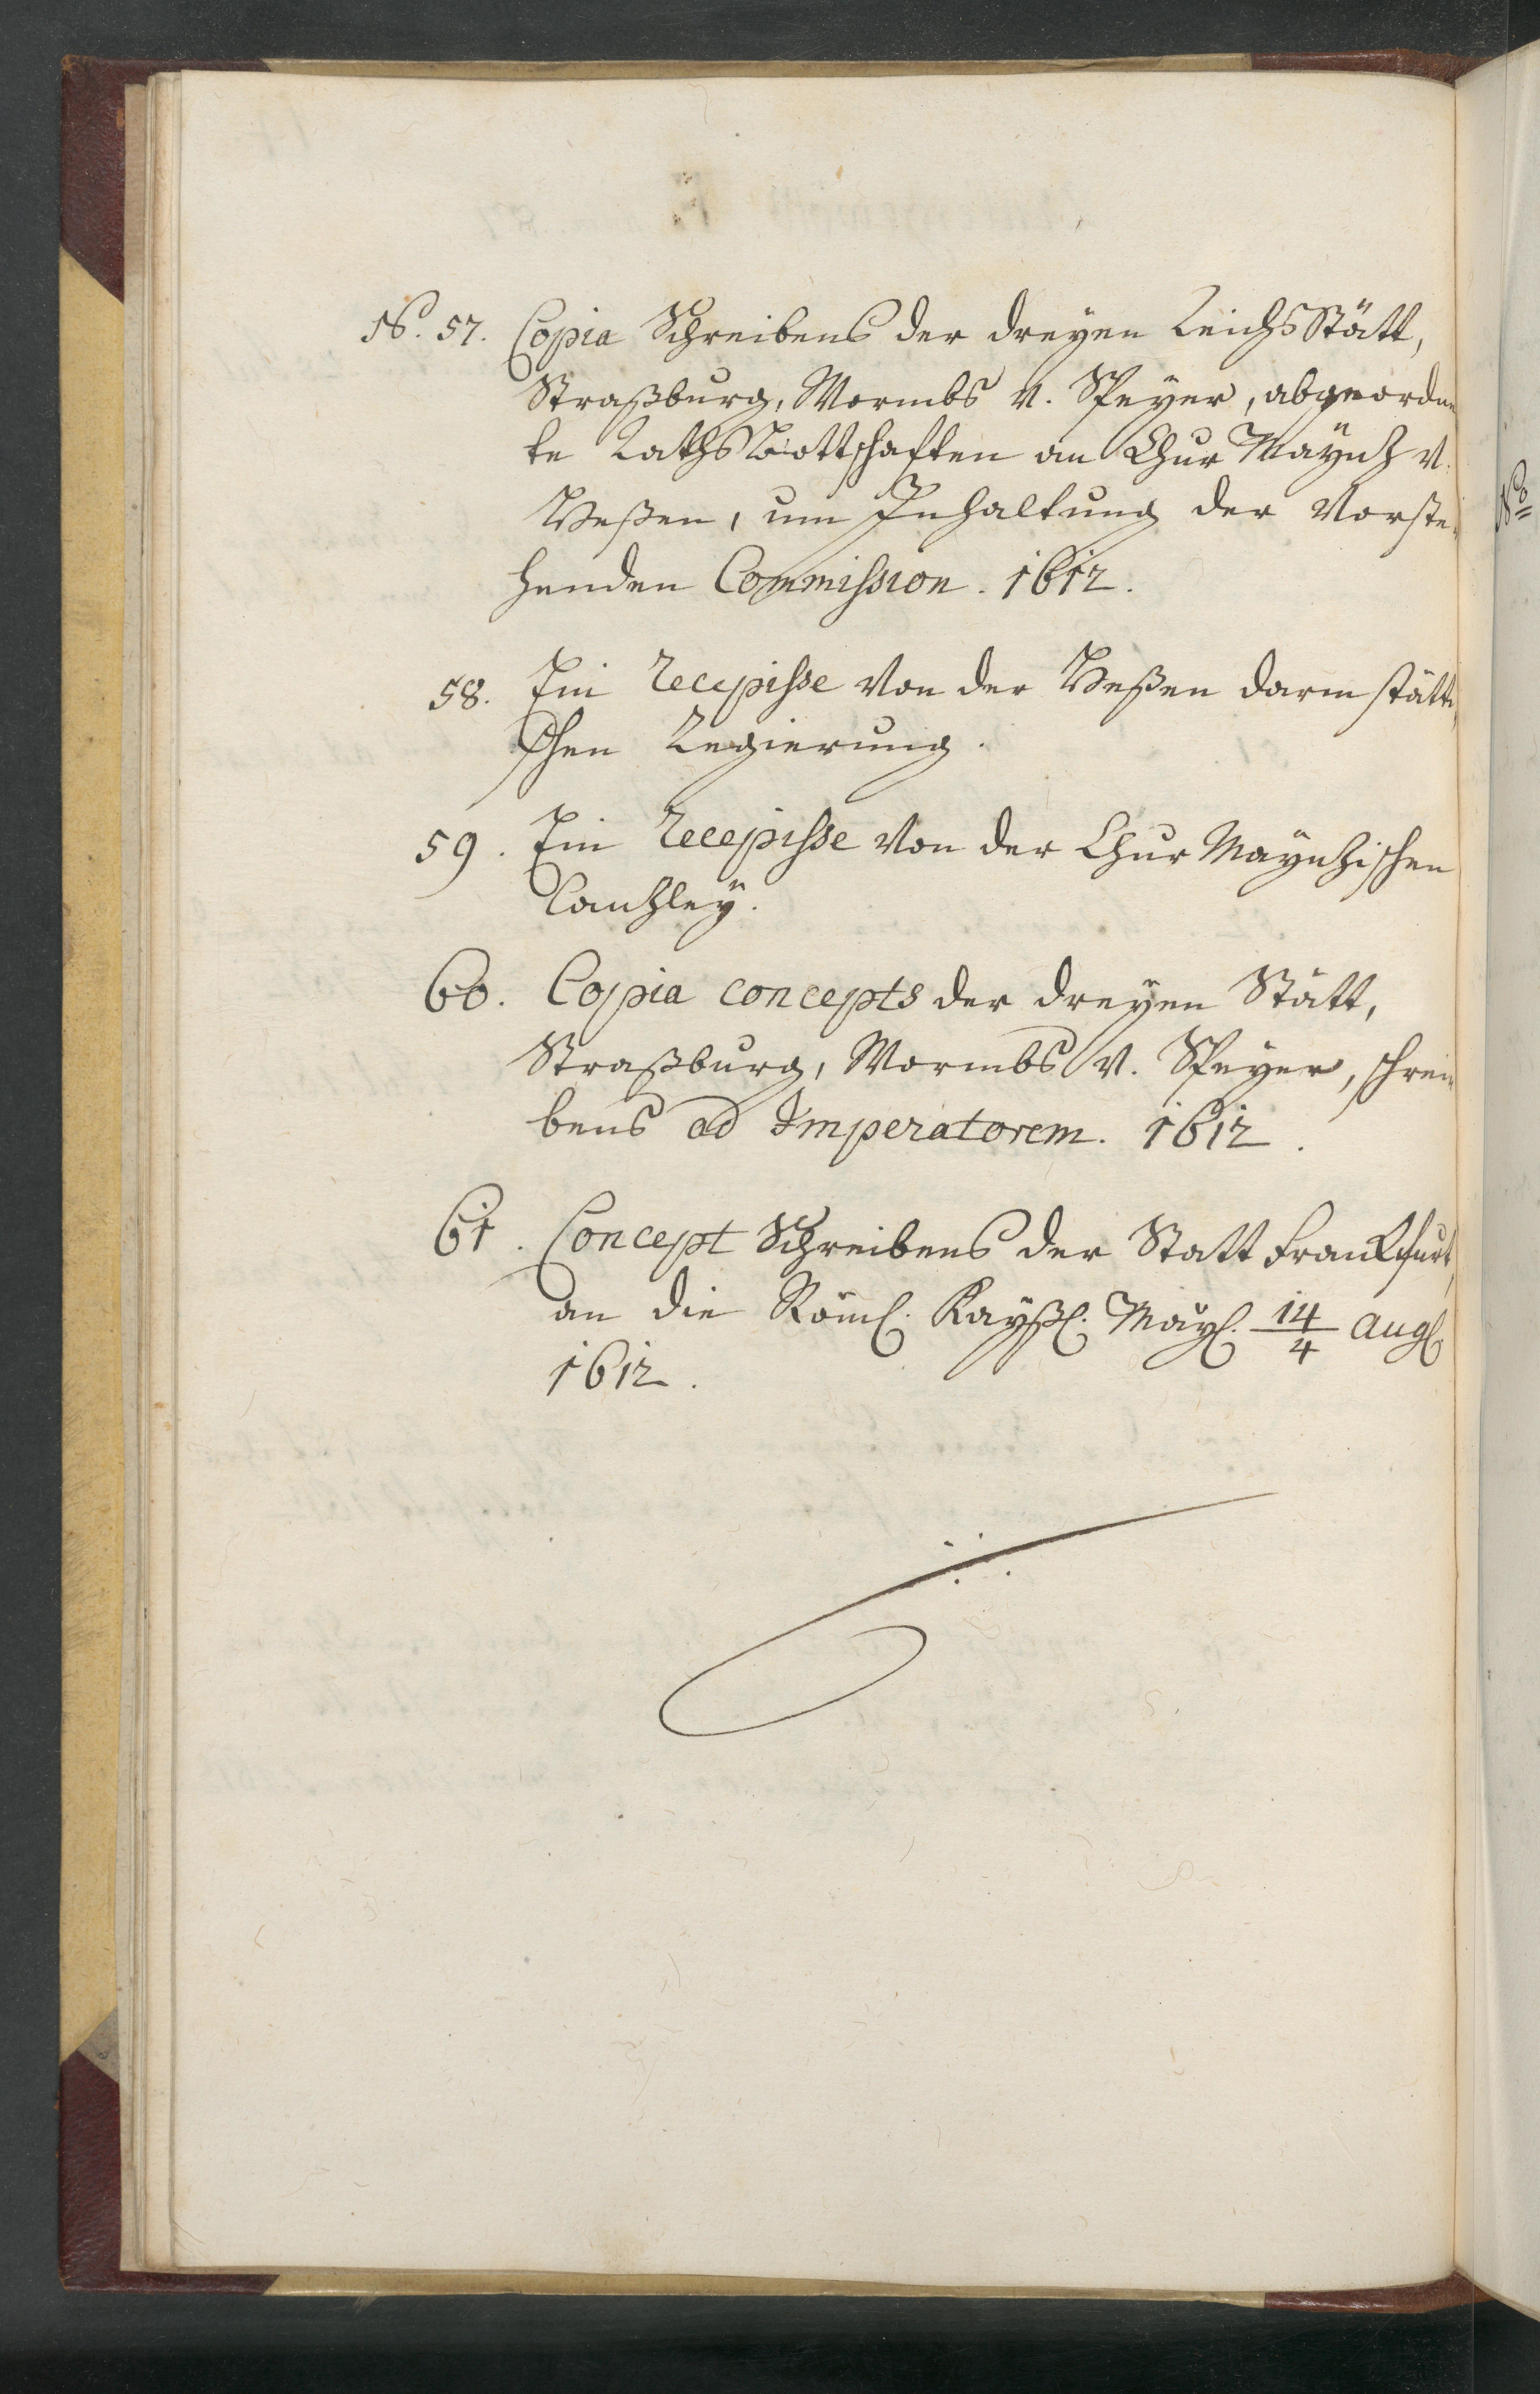 No. 57. Copia Schreibens der dreyen ReichsStätt,
Straßburg, Wormbs v. Speyer, abgeordne
te RathsBottschaften an Chur Mayntz v.
Heßen, um Inhaltung der Vorste-
henden Commission. 1612.
58. Ein Recepisse Von der Heßen darmstätti
schen Regierung.
59. Ein Recepisse Von der Chur Mayntzischen
Cantzley.
60. Copia concepts der dreyen Stätt,
Straßburg, Wormbs v. Speyer, schrei-
bens ad Imperatorem. 1612.
61. Concept Schreibens der Statt Franckfurt,
an die Röml. Kayßl. Mayl. 14/4 Augl.
1612.
No